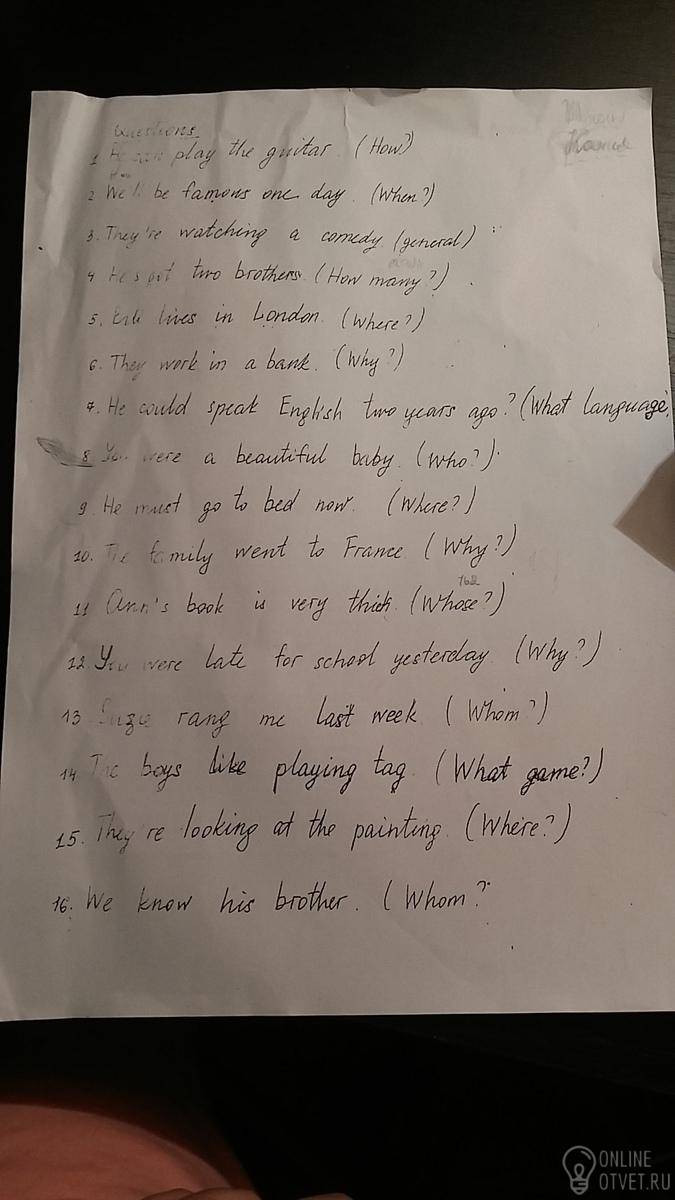 Questions.
1 He can play the guitar. (How?)
2 We'll be famous one day. (When?)
3. They're watching a comedy. (general)
4 He's got two brothers. (How many?)
5. lives in London. (Where?)
6. They work in a bank. (Why?)
7. He could speak English two years ago? (What language,
8. You were a beautiful baby. (Who?)
9. He must go to bed now. (Where?)
10. The family went to France. (Why?)
11 Ann's book is very thick. (Whose?)
12. You were late for school yesterday. (Why?)
13 Suzie rang me last week. (Whom?)
14. The boys like playing tag. (What game?)
15. They're looking at the painting. (Where?)
16. We know his brother. (Whom?
ONLINE
OTVET.RU